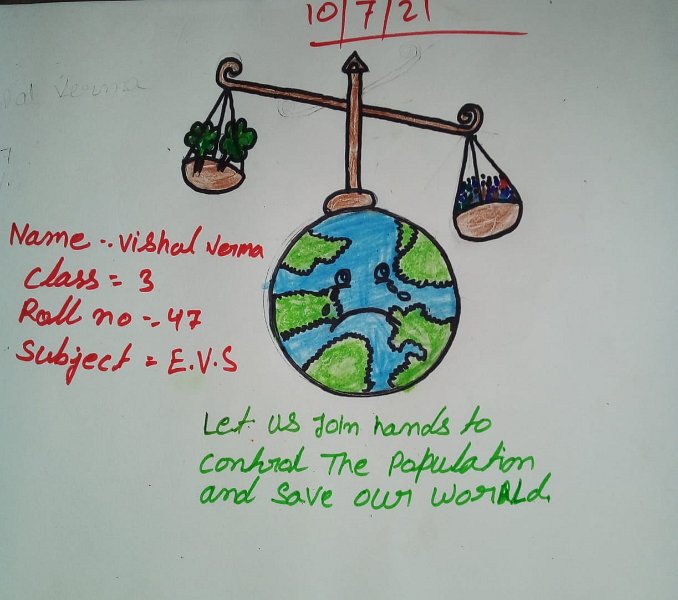 10/7/21
Verma
Name -. Vishal Verma
Class = 3
Roll no -. 47
Subject = E.V.S
Let us Join hands to
control The Population
and save our WORLD.